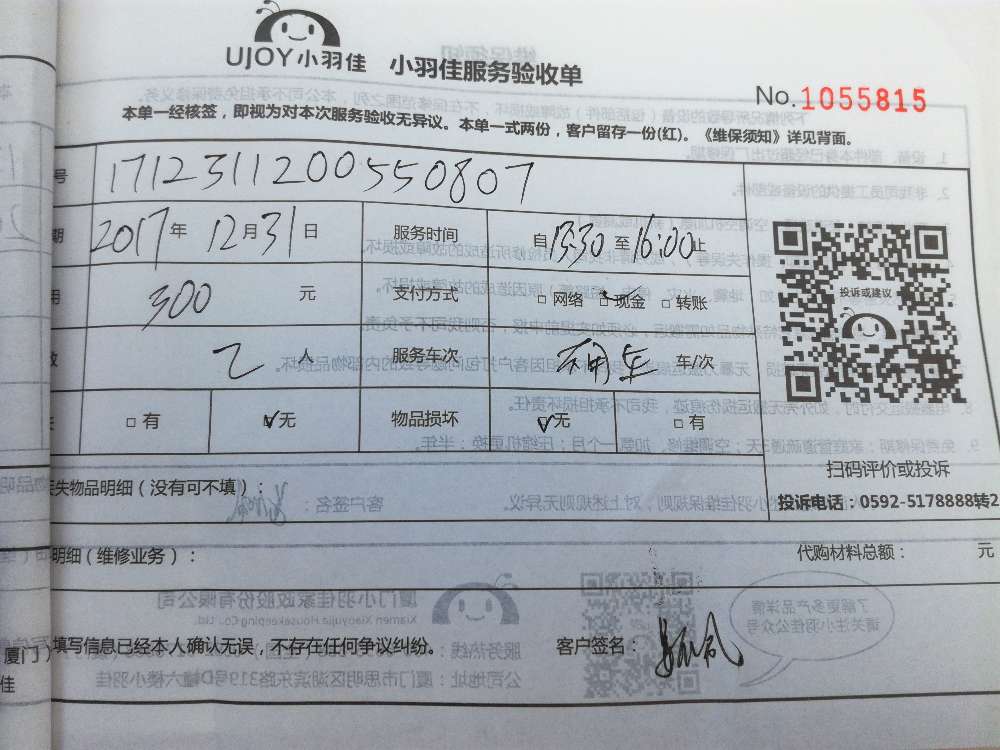 UJOY小羽佳 小羽佳服务验收单
No.1055815
本单一经核签，即视为对本次服务验收无异议。本单一式两份，客户留存一份(红)。《维保须知》详见背面。
号 1712311200550807
期 2017年12月31日 服务时间 自13:30至16:00止
用 300 元 支付方式 □网络 □现金 □转账
投诉或建议
数 2 人 服务车次 不用车 车/次
□有 ☑无 物品损坏 ☑无 □有
扫码评价或投诉
丢失物品明细（没有可不填）：
投诉电话：0592-5178888转2
明细（维修业务）： 代购材料总额： 元
填写信息已经本人确认无误，不存在任何争议纠纷。 客户签名：
厦门）
佳